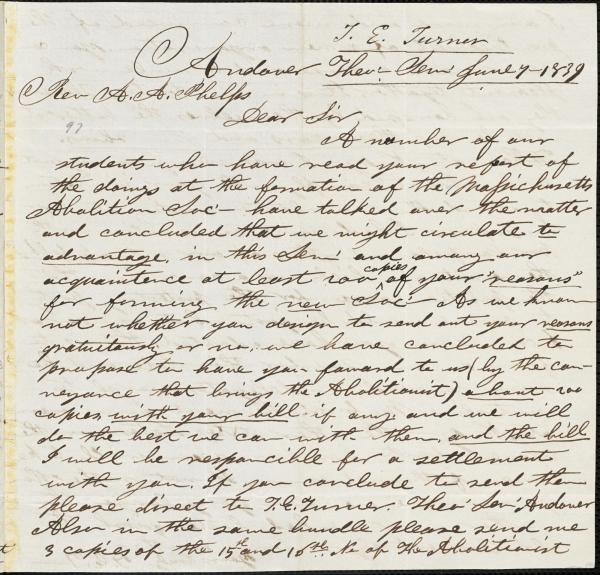 T. E. Turner
Andover Theo- Sem June 7- 1839
Rev A. A. Phelps
97
Dear Sir
A number of our
students who have read your report of
the doings at the formation of the Massichusetts
Abolition Soc- have talked over the matter
and concluded that we might circulate to
advantage, in this Sem- and among our
acquaintence at least 200 copies of your "reasons"
for forming the new Soc- As we know
not whether you design to send out your reasons
gratuitously or no, we have concluded to
propose to have you foward to us (by the con-
veyance that brings the Abolitionist) about 200
copies with your bill if any; and we will
do the best we can with them, and the bill
I will be responcible for a settlement
with you. If you conclude to send them
please direct to T. E. Turner. Theo- Sem- Andover
Also in the same bundle please send me
3 copies of the 15th and 16th No of The Abolitionist